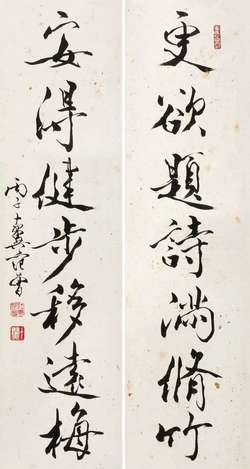 更欲題詩滿脩竹
安得健步移遠梅
丙子十翼范曾